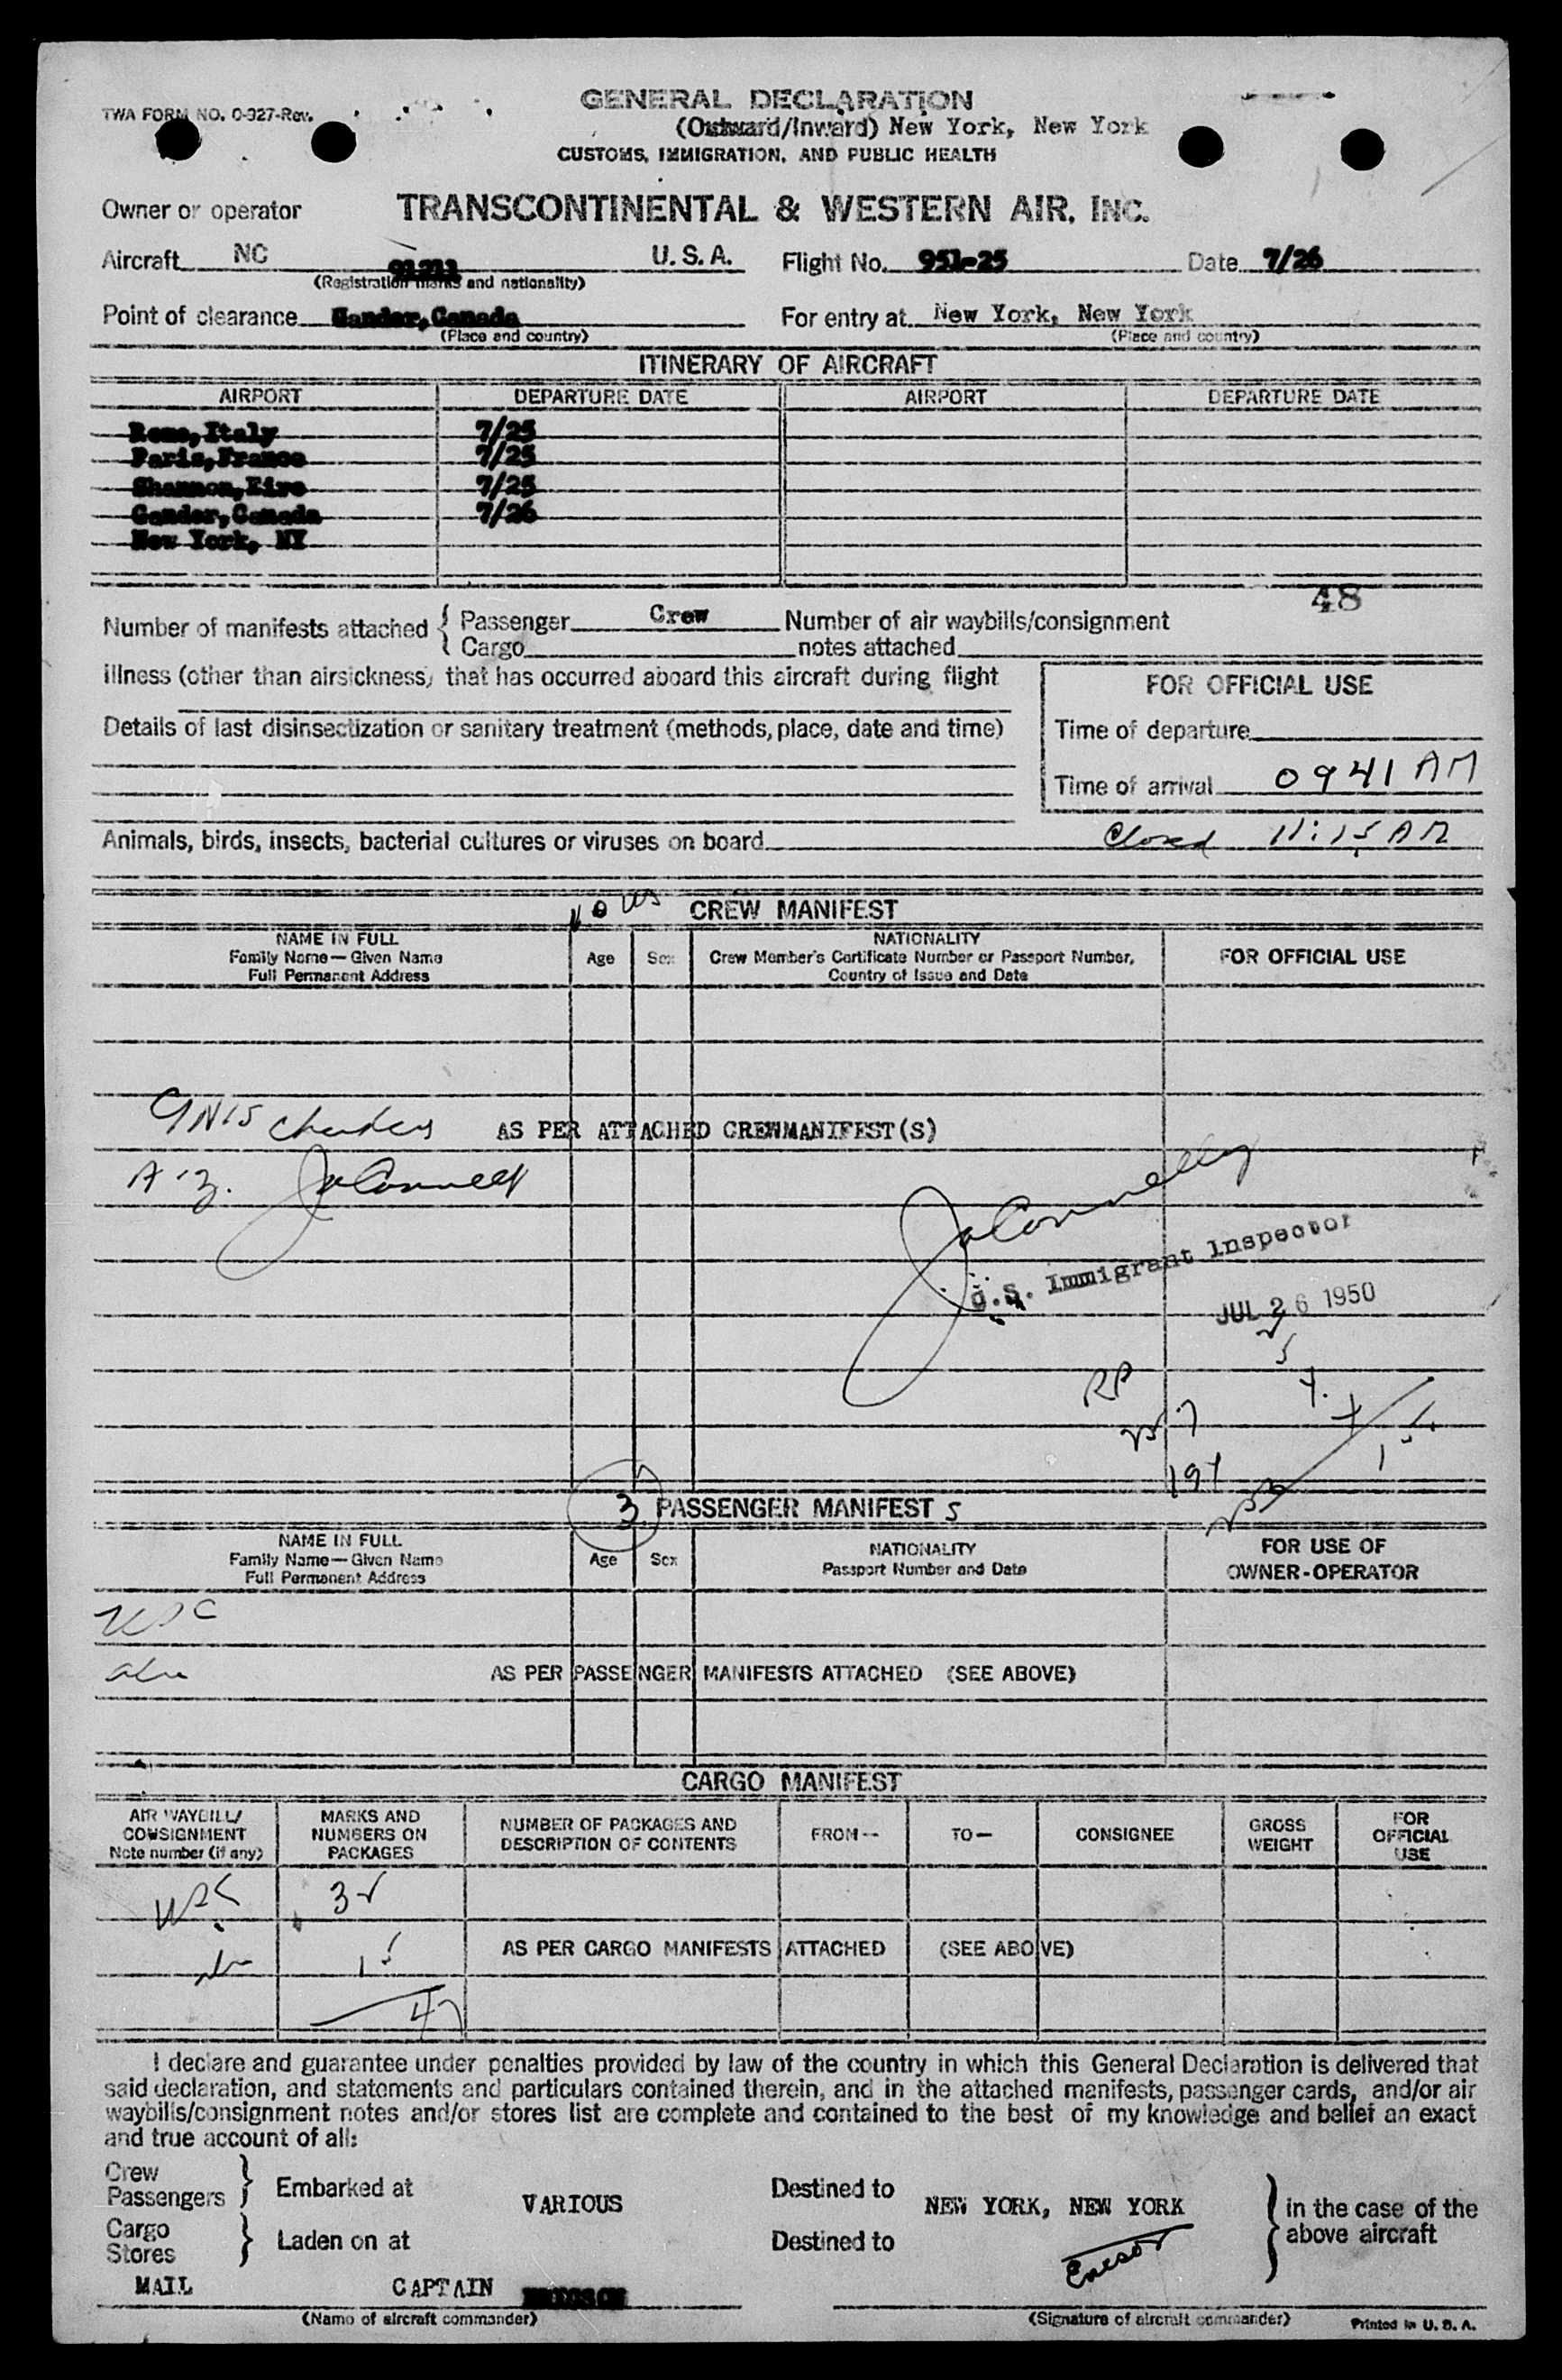 TWA FORM NO. O-927-Rev.
GENERAL DECLARATION
(Outward/Inward) New York, New York
CUSTOMS, IMMIGRATION, AND PUBLIC HEALTH
Owner or operator TRANSCONTINENTAL & WESTERN AIR, INC.
Aircraft NC 91211 U. S. A. Flight No. 951-25 Date 7/26
(Registration marks and nationality)
Point of clearance Gander, Canada For entry at New York, New York
(Place and country) (Place and country)
ITINERARY OF AIRCRAFT
AIRPORT DEPARTURE DATE AIRPORT DEPARTURE DATE
Rome, Italy 7/25
Paris, France 7/25
Shannon, Eire 7/25
Gander, Canada 7/26
New York, NY
48
Number of manifests attached { Passenger Crew Number of air waybills/consignment
Cargo notes attached
Illness (other than airsickness) that has occurred aboard this aircraft during flight
FOR OFFICIAL USE
Details of last disinsectization or sanitary treatment (methods, place, date and time)
Time of departure
Time of arrival 0941 AM
Animals, birds, insects, bacterial cultures or viruses on board Closed 11:15 AM
CREW MANIFEST
NAME IN FULL
Family Name—Given Name
Full Permanent Address
Age Sex
NATIONALITY
Crew Member's Certificate Number or Passport Number,
Country of Issue and Date
FOR OFFICIAL USE
AS PER ATTACHED CREWMANIFEST(S)
U.S. Immigrant Inspector
JUL 26 1950
3 PASSENGER MANIFEST 5
NAME IN FULL
Family Name—Given Name
Full Permanent Address
Age Sex
NATIONALITY
Passport Number and Date
FOR USE OF
OWNER-OPERATOR
AS PER PASSENGER MANIFESTS ATTACHED (SEE ABOVE)
CARGO MANIFEST
AIR WAYBILL/
CONSIGNMENT
Note number (if any)
MARKS AND
NUMBERS ON
PACKAGES
NUMBER OF PACKAGES AND
DESCRIPTION OF CONTENTS
FROM—
TO—
CONSIGNEE
GROSS
WEIGHT
FOR
OFFICIAL
USE
AS PER CARGO MANIFESTS ATTACHED (SEE ABOVE)
I declare and guarantee under penalties provided by law of the country in which this General Declaration is delivered that
said declaration, and statements and particulars contained therein, and in the attached manifests, passenger cards, and/or air
waybills/consignment notes and/or stores list are complete and contained to the best of my knowledge and belief an exact
and true account of all:
Crew
Passengers } Embarked at VARIOUS Destined to NEW YORK, NEW YORK
Cargo
Stores } Laden on at Destined to
} in the case of the
above aircraft
MAIL CAPTAIN ERICSON
(Name of aircraft commander) (Signature of aircraft commander) Printed in U. S. A.